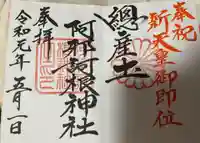 奉祝
新天皇御即位
總産土
阿邪訶根神社
奉拝
令和元年五月一日